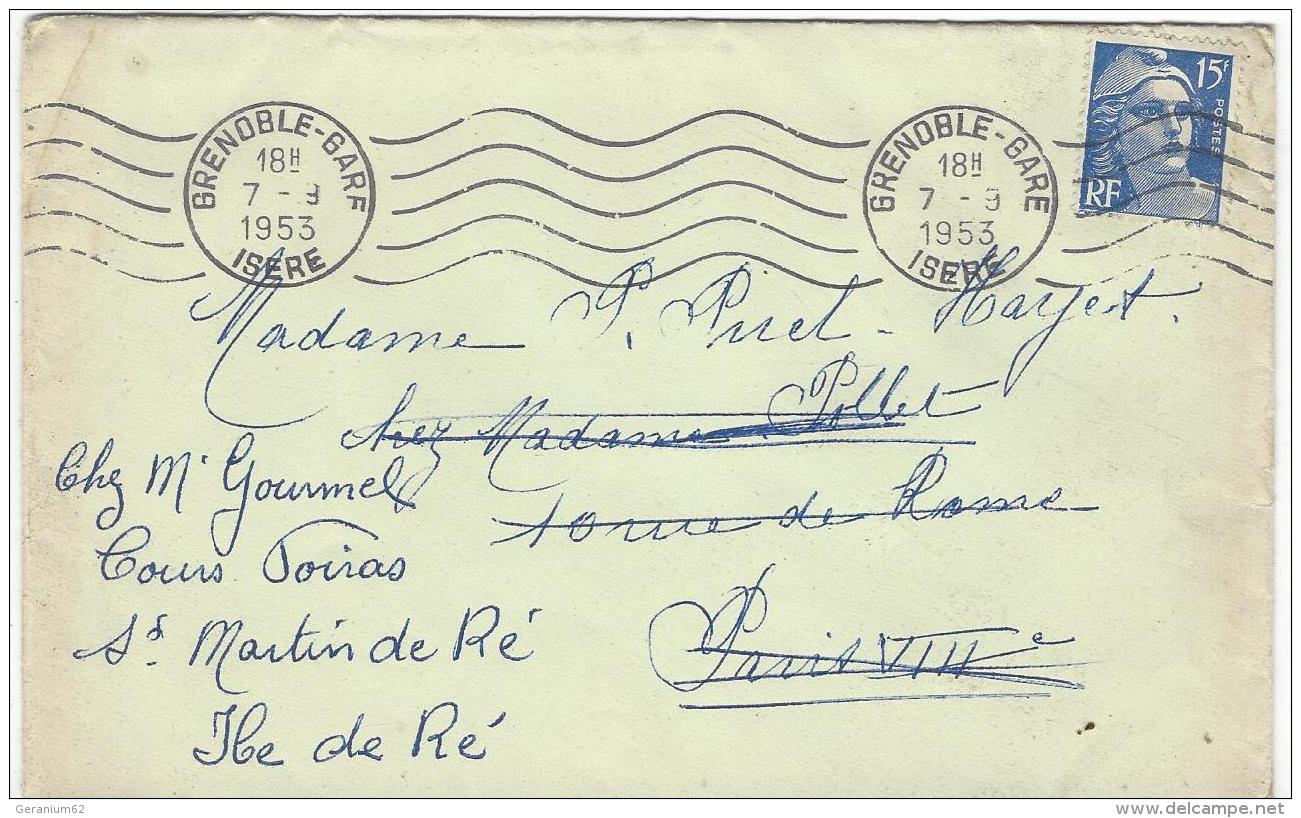 GRENOBLE-GARE
18H
7 - 9
1953
ISERE
GRENOBLE-GARE
18H
7 - 9
1953
ISERE
15F
POSTES
RF
Madame P.
chez Madame Pollet
rue de Rome
Paris VIIIe
Chez Mr Gourmel
Cours Toiras
St. Martin de Ré
Ile de Ré
Geranium62
www.delcampe.net